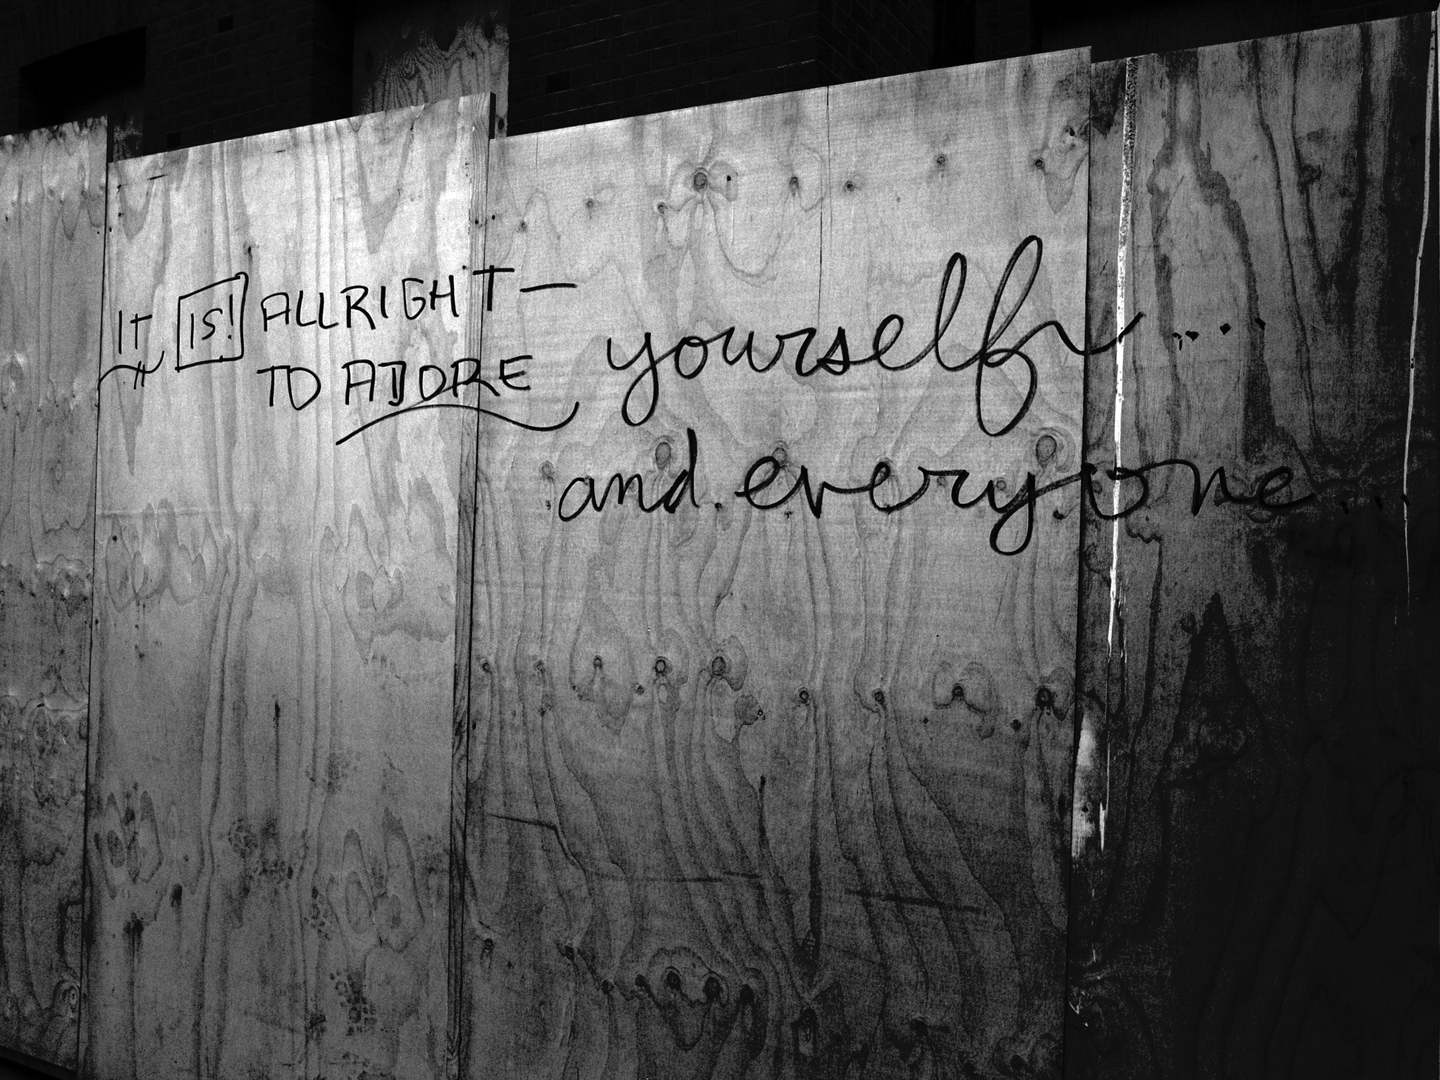 IT IS! ALLRIGHT—
TO ADORE yourself....
and everyone...